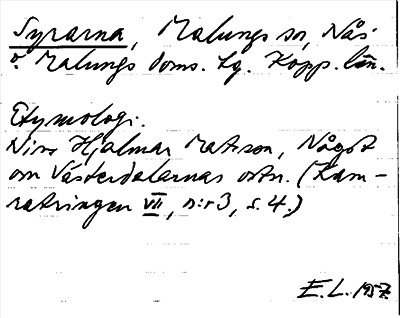 Syrarna, Malungs sn, Nås
o. Malungs doms. tg. Kopp. län.
Etymologi.
Nirs Hjalmar Matsson, Något
om Västerdalarnas ortn. (Kam-
ratringen VII, n:r 3, s. 4.)
E. L. 1957.